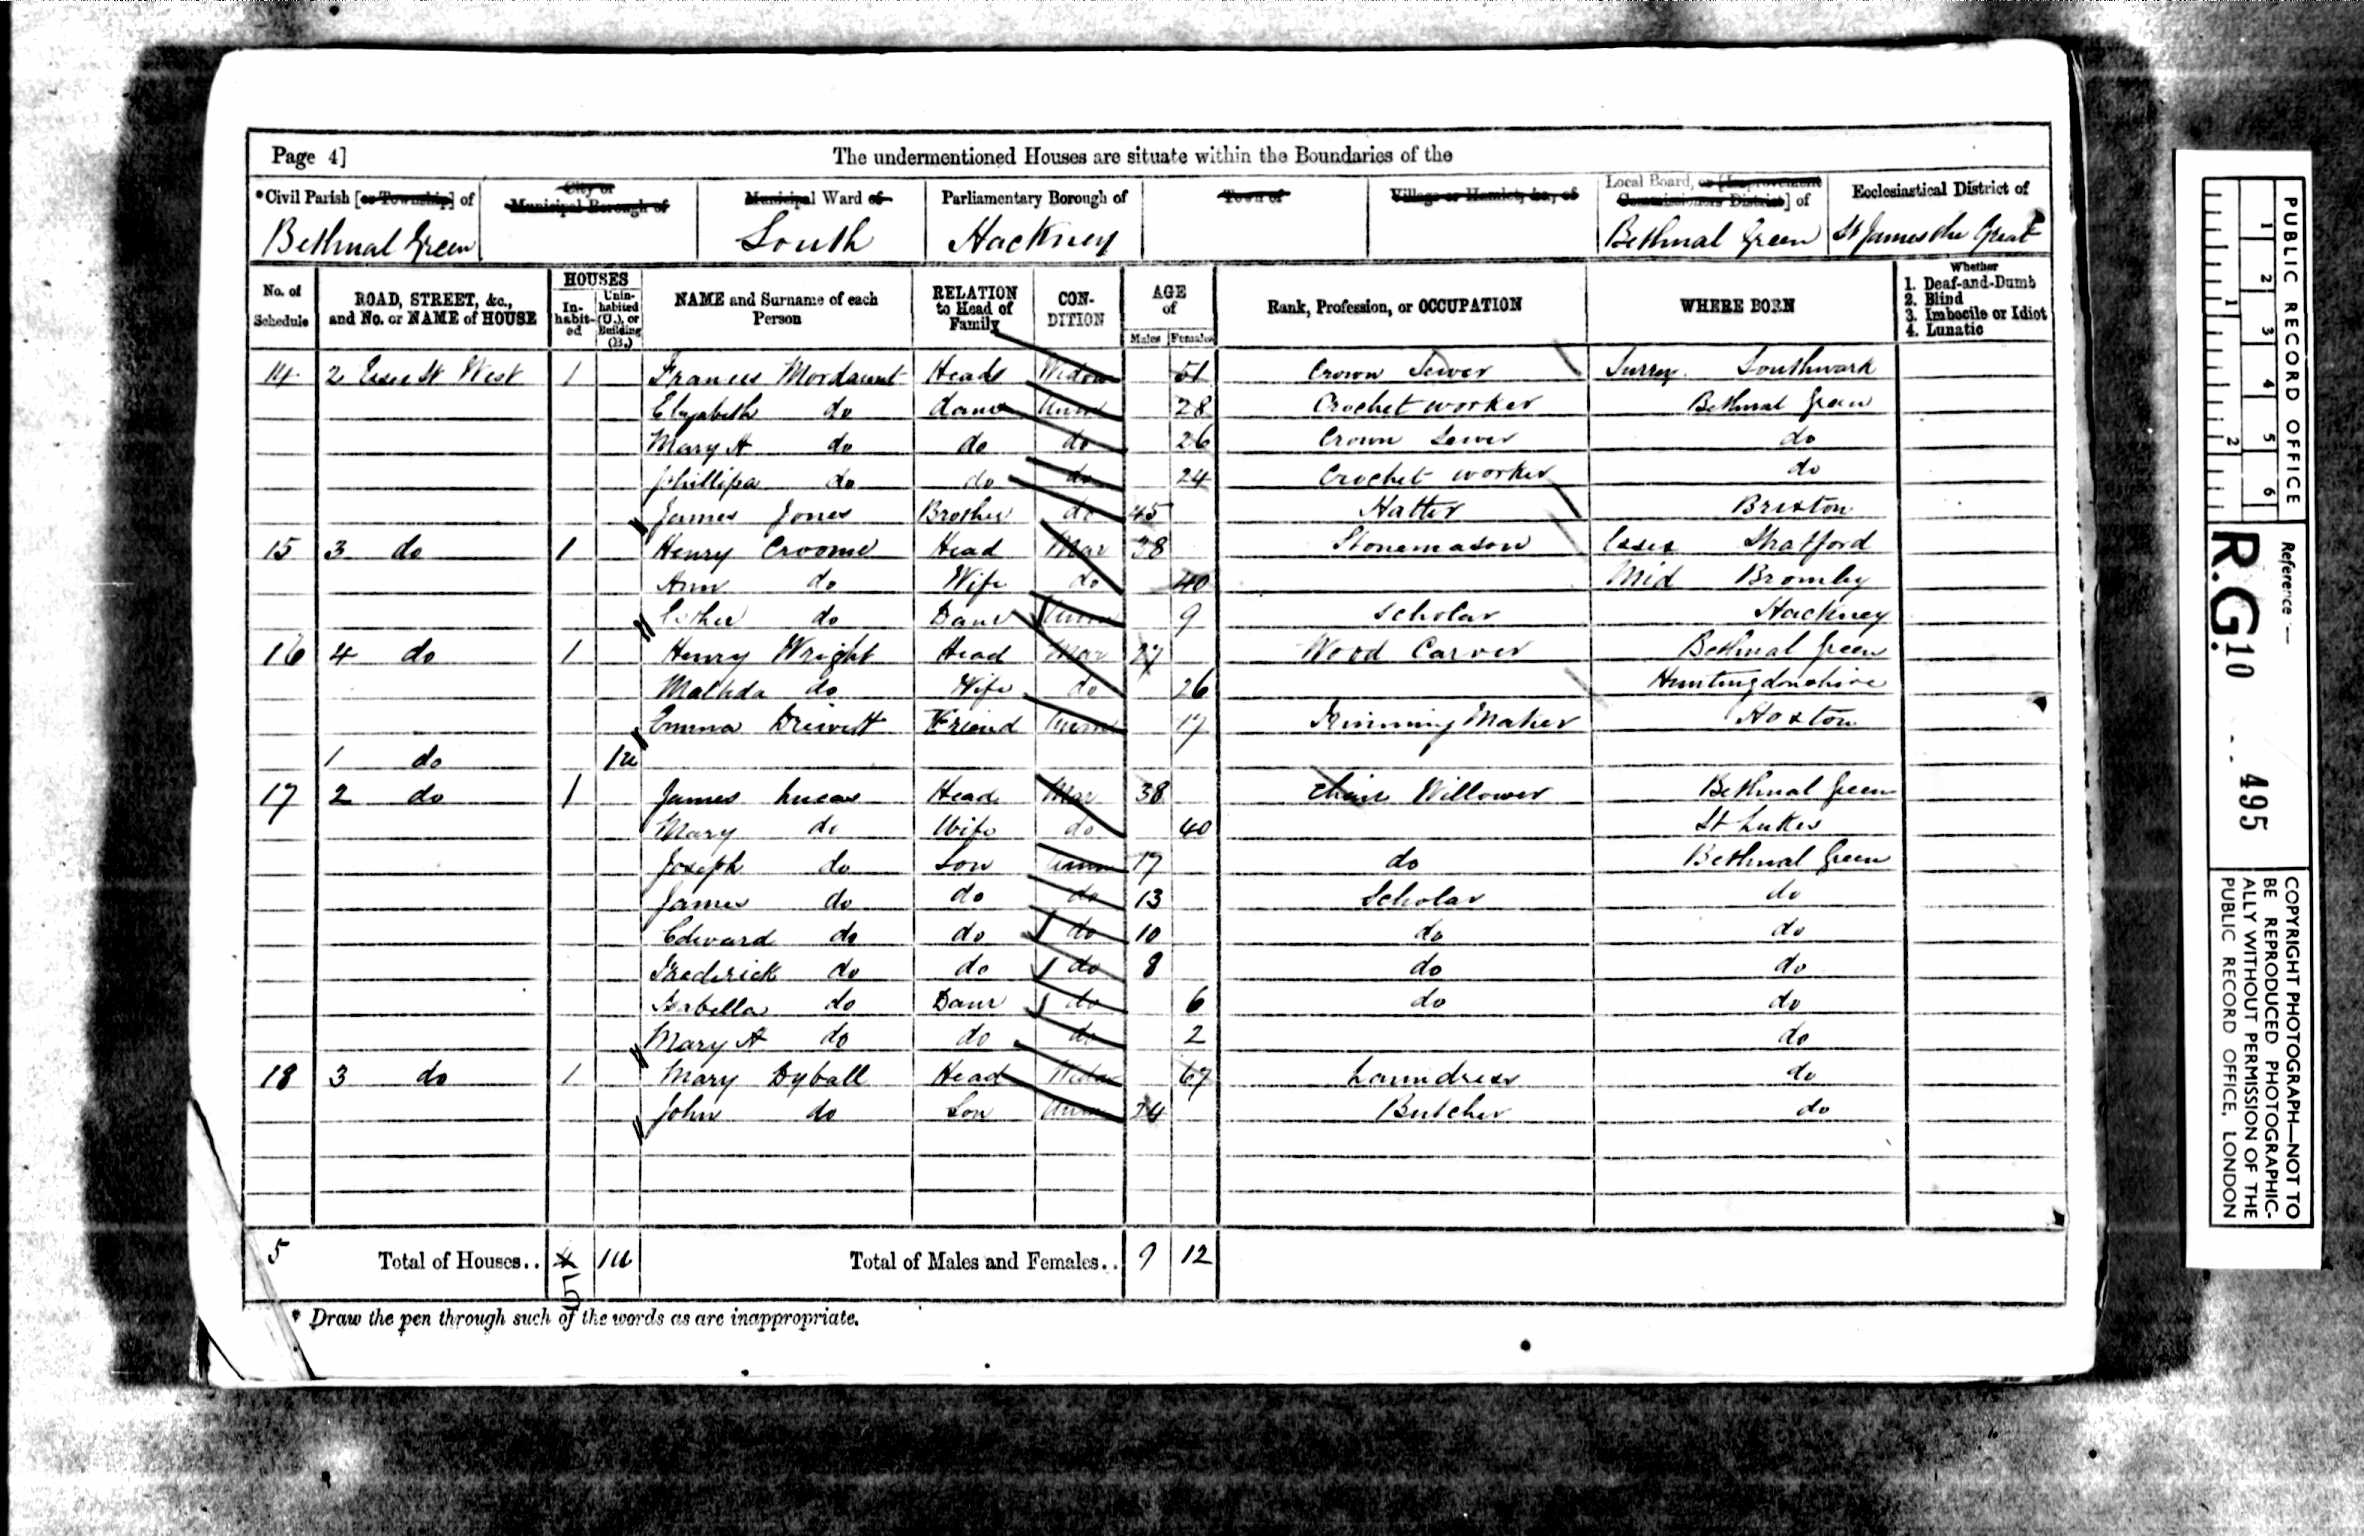 Page 4] The undermentioned Houses are situate within the Boundaries of the
*Civil Parish [or Township] of City or Municipal Borough of Municipal Ward of Parliamentary Borough of Town of Village or Hamlet, &c., of Local Board, or [Improvement Commissioners District] of Ecclesiastical District of
Bethnal Green South Hackney Bethnal Green St James the Great
No. of Schedule ROAD, STREET, &c., and No. or NAME of HOUSE HOUSES In-habit-ed Unin-habited (U.), or Building (B.) NAME and Surname of each Person RELATION to Head of Family CON-DITION AGE of Males Females Rank, Profession, or OCCUPATION WHERE BORN Whether 1. Deaf-and-Dumb 2. Blind 3. Imbecile or Idiot 4. Lunatic
14 2 St West 1 Frances Mordaunt Head Widow 51 Crown Sewer Surrey Southwark
Elizabeth do Unm 28 Crochet worker Bethnal Green
Mary A do do do 26 Crown Sewer do
Phillipa do do do 24 Crochet worker do
James Jones Brother do 45 Hatter Brixton
15 3 do 1 Henry Croome Head Mar 38 Stonemason Essex Stratford
Ann do Wife do 40 Mid Bromley
Esther do Daur Unm 9 Scholar Hackney
16 4 do 1 Henry Wright Head Mar 27 Wood Carver Bethnal Green
Matilda do Wife do 26 Huntingdonshire
Emma Friend Unm 17 Trimming Maker Hoxton
1 do 1u
17 2 do 1 James Lucas Head Mar 38 Chair Willower Bethnal Green
Mary do Wife do 40 St Lukes
Joseph do Son Unm 17 do Bethnal Green
James do do do 13 Scholar do
Edward do do do 10 do do
Frederick do do do 8 do do
Isabella do Daur do 6 do do
Mary A do do do 2 do
18 3 do 1 Mary Dyball Head Widow 67 Laundress do
John do Son Unm 24 Butcher do
5 Total of Houses.. 4 5 1u Total of Males and Females.. 9 12
* Draw the pen through such of the words as are inappropriate.
PUBLIC RECORD OFFICE
1 2 3 4 5 6
1 2
Reference :—
R.G. 10 495
COPYRIGHT PHOTOGRAPH—NOT TO
BE REPRODUCED PHOTOGRAPHIC-
ALLY WITHOUT PERMISSION OF THE
PUBLIC RECORD OFFICE, LONDON